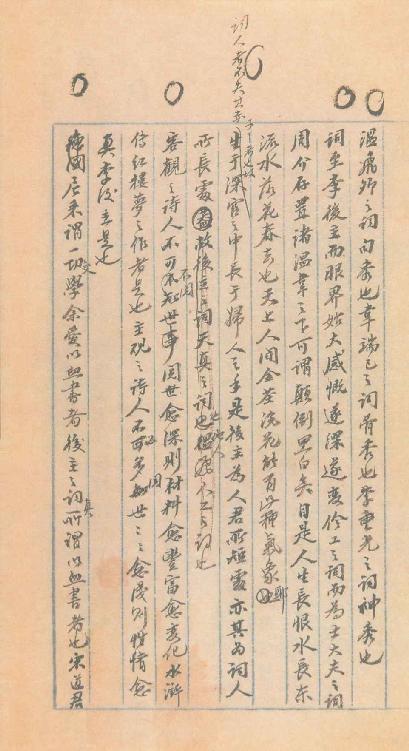 溫飛卿之詞句秀也韋端己之詞骨秀也李重光之詞神秀也
詞至李後主而眼界始大感慨遂深遂變伶工之詞而為士大夫之詞
周介存置諸溫韋之下可謂顛倒黑白矣自是人生長恨水長東
流水落花春去也天上人間金荃浣花能有此種氣象耶
詞人者不失其赤子之心者也故
生于深宮之中長于婦人之手是後主為人君所短處亦其為詞人
所長處故後主之詞天真之詞也他人人工之詞也
客觀之詩人不可不閱世事閱世愈深則材料愈豐富愈變化水滸
傳紅樓夢之作者是也主觀之詩人不必多閱世閱世愈淺則性情愈
真李後主是也
尼采謂一切文學余愛以血書者後主之詞真所謂以血書者也宋道君